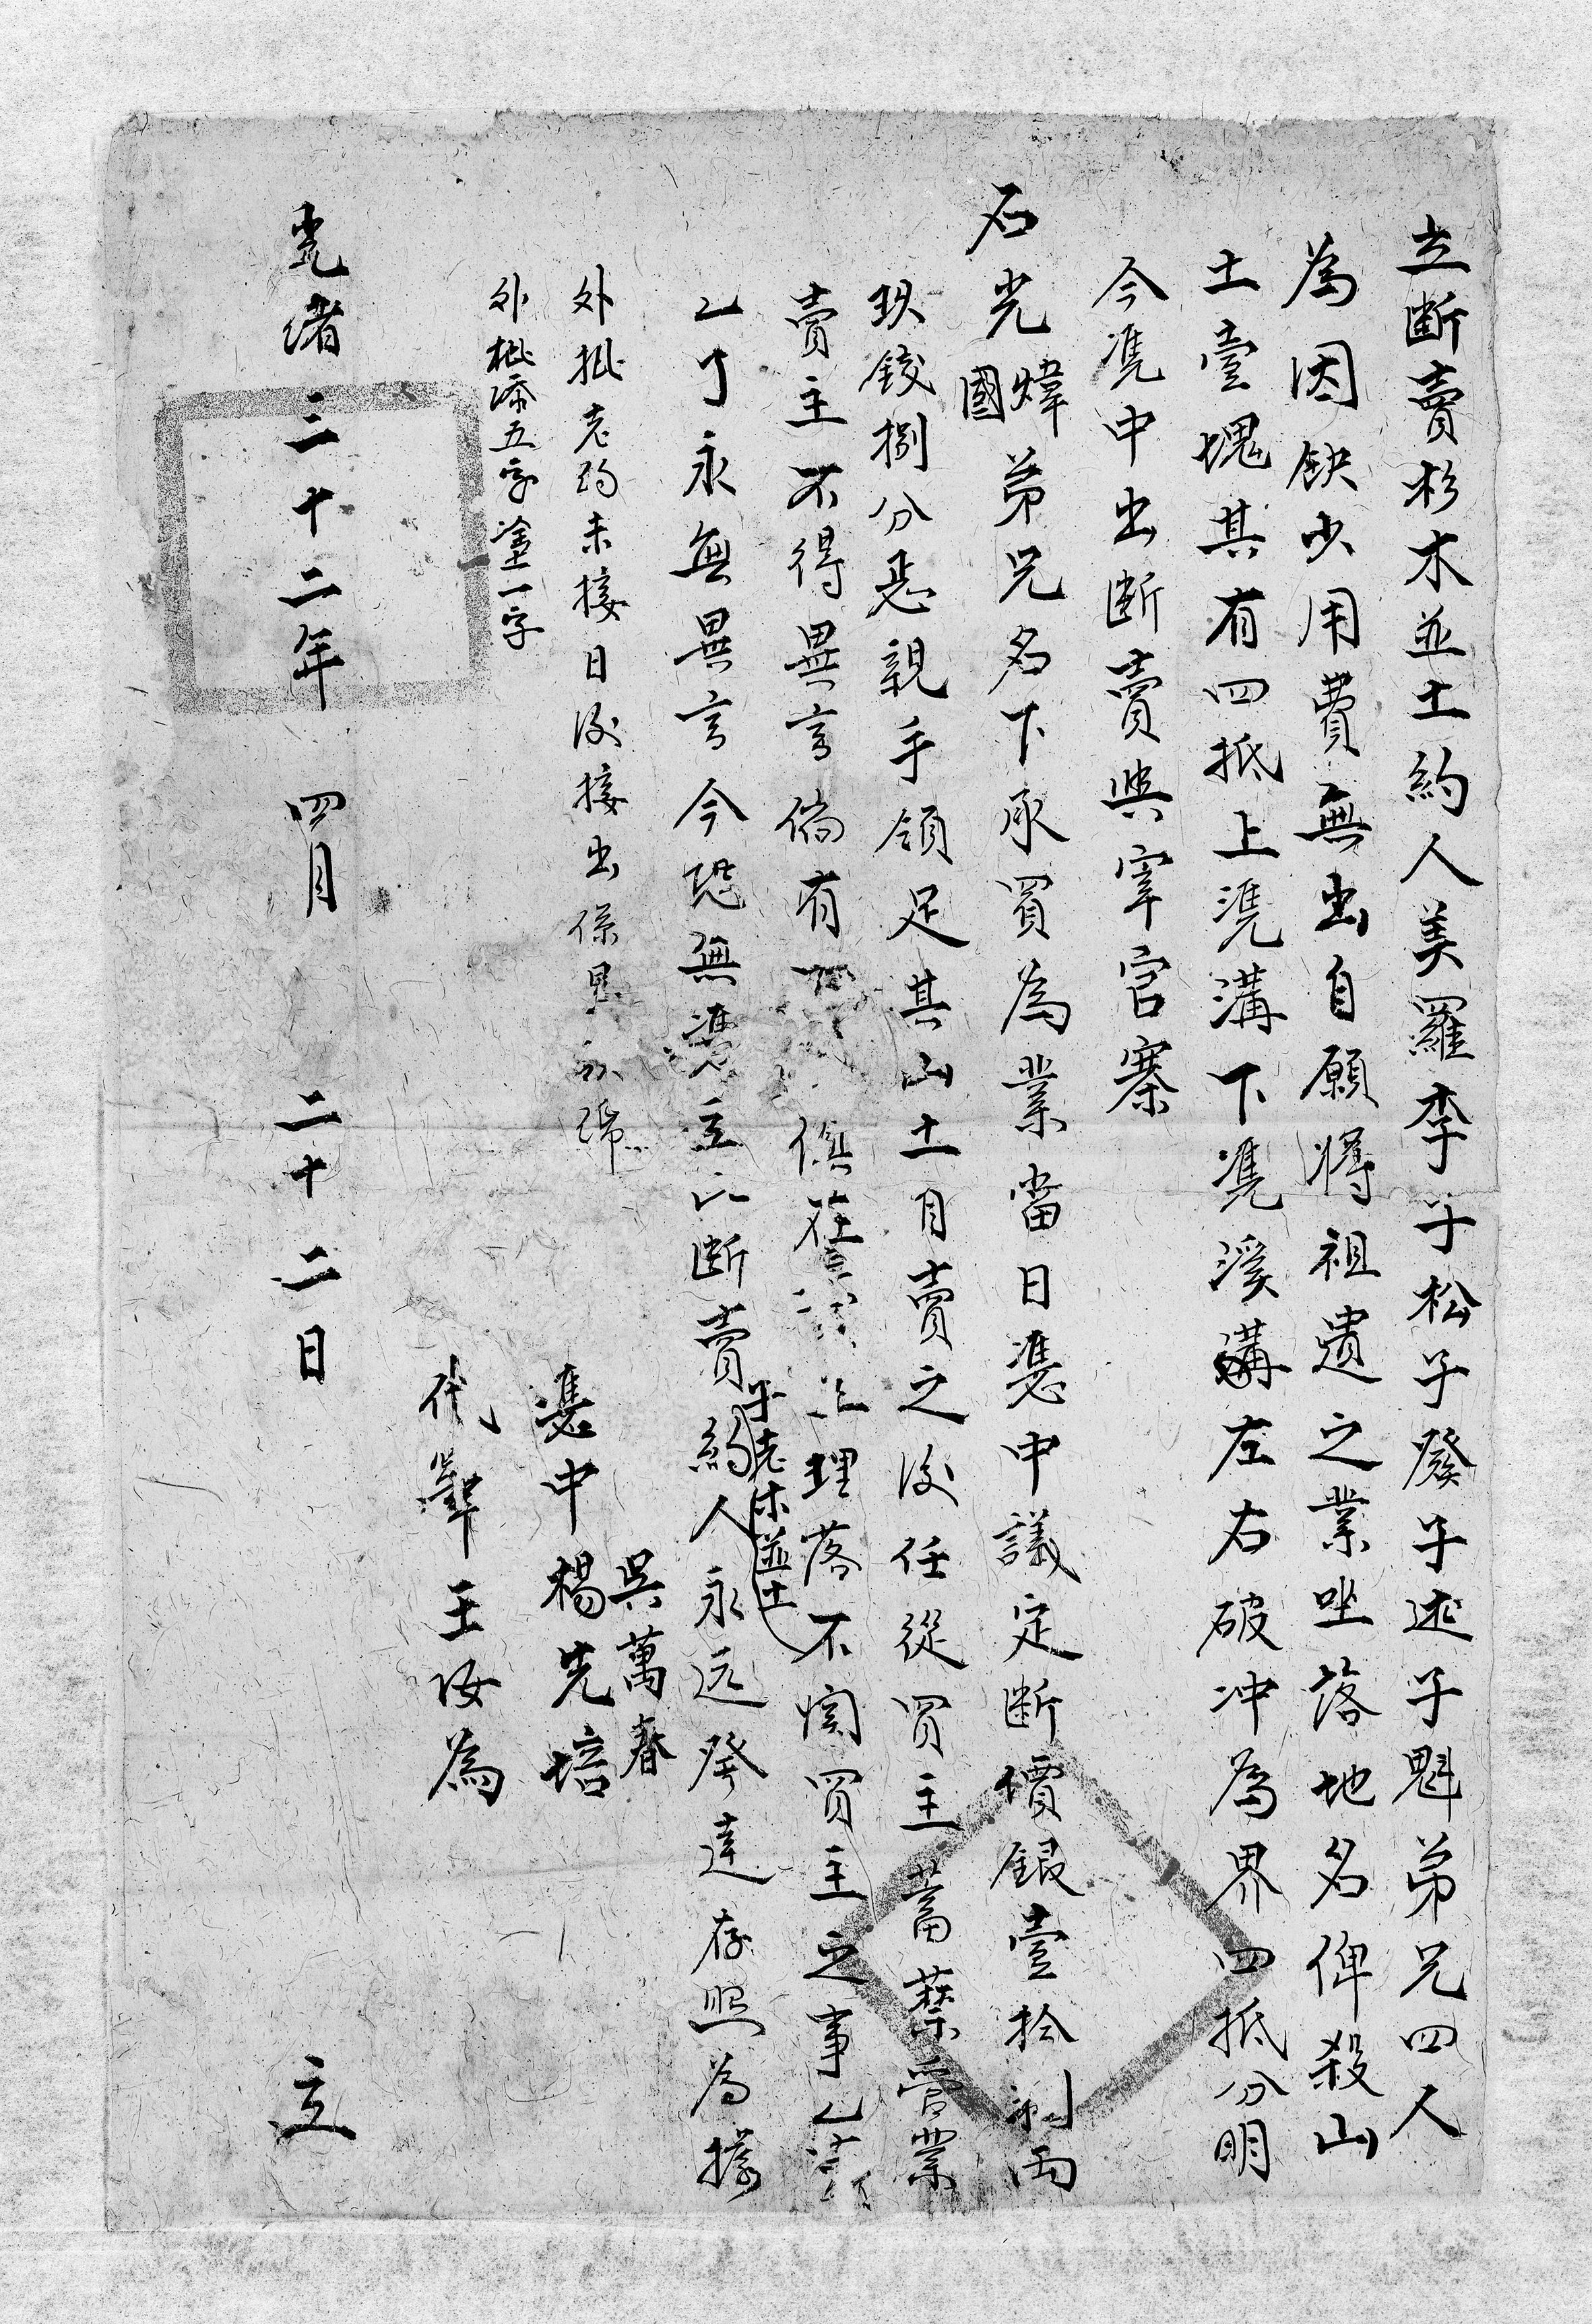 立断賣杉木並土約人美羅李子松子發子述子魁弟兄四人
為因缺少用費無出自願將祖遺之業坐落地名俾殺山
土壹塊其有四抵上憑溝下憑溪溝左右破冲為界四抵分明
今憑中出断賣與宰官寨
石光煒國弟兄名下承買為業當日憑中議定断價銀壹拾捌両
玖錢捌分悉親手領足其山土自賣之後任從買主蓄禁管業
賣主不得異言倘有俱在賣主理落不関買主之事乙清
乙了永無異言今恐無憑立此断賣約人永远發達存照為據
子老木並土
外批老約未接日後接出係是故紙
外批添五字塗一字
吳萬春
憑中楊先培
代筆王汝為
光緒三十二年四月二十二日立